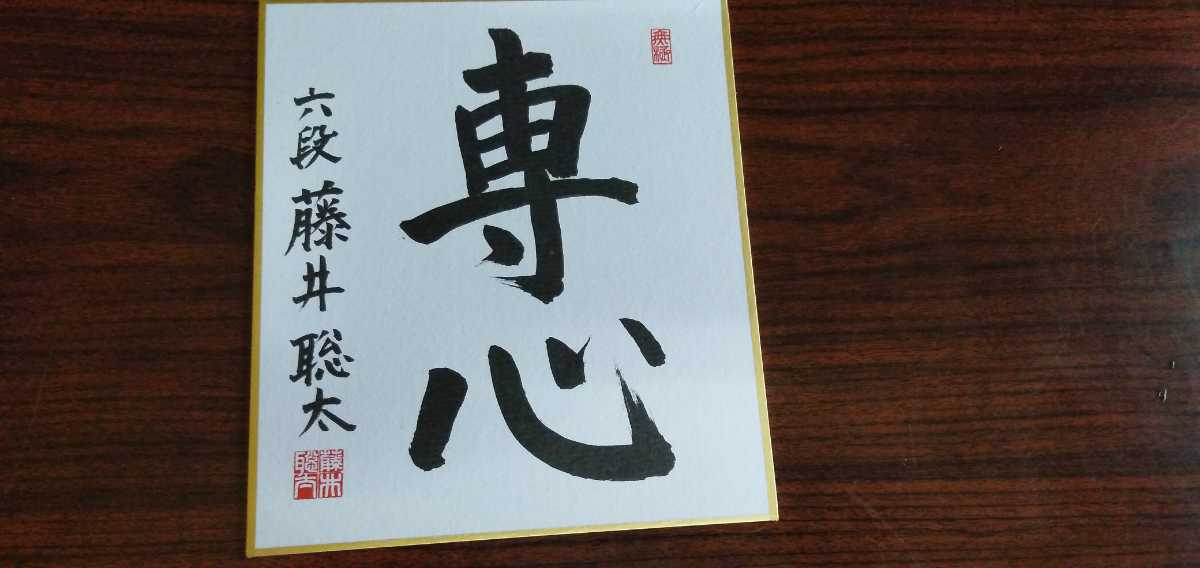 専心
六段 藤井聡太
無極
藤井聡太